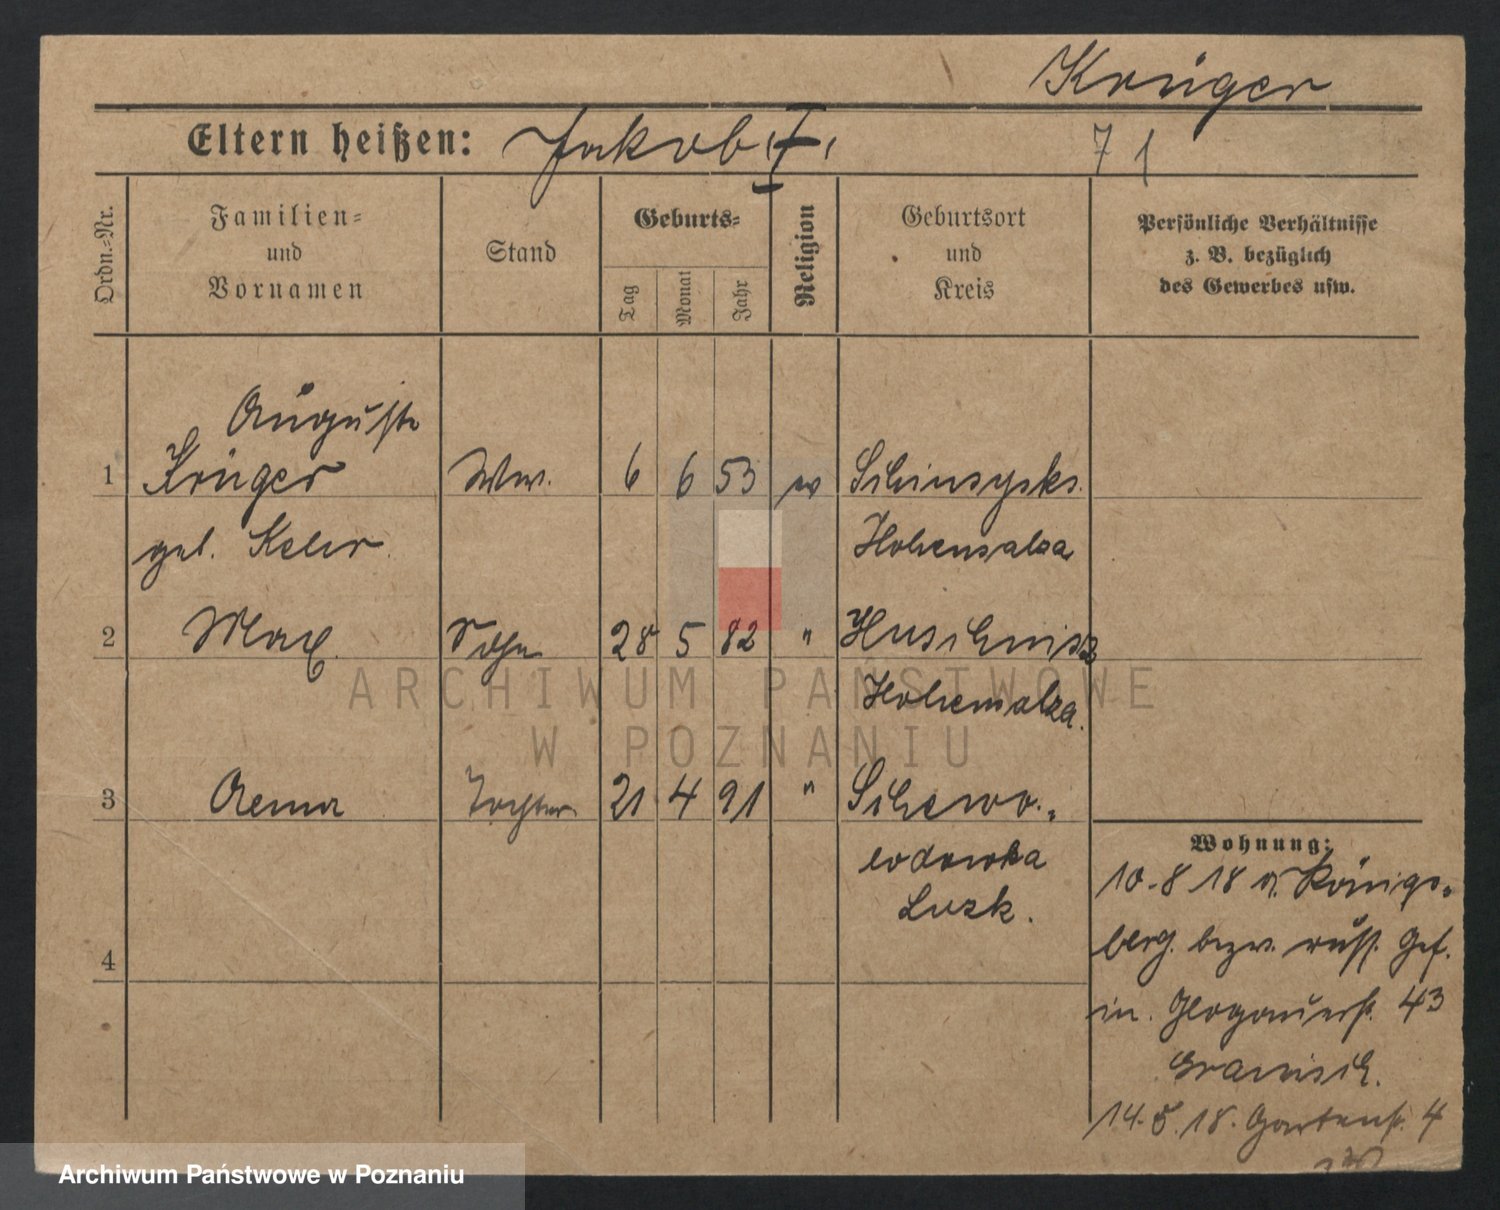 Krüger
Eltern heißen: Jakob I, 71
Ordn.=Nr.
Familien=
und
Vornamen
Stand
Geburts=
Tag
Monat
Jahr
Religion
Geburtsort
und
Kreis
Persönliche Verhältnisse
z. B. bezüglich
des Gewerbes usw.
Auguste
1 Krüger Ww. 6 6 53 ev
Hohensalza
geb.
2 Max Sohn 28 5 82 "
Hohensalza.
3 Tochter 21 4 91 "
Luzk.
4
Wohnung:
10.8 18 v. Königs=
berg. bezw. russ. Gef.
in. Glogauerstr. 43
14.5.18. Gartenstr. 4
ARCHIWUM PAŃSTWOWE
W POZNANIU
Archiwum Państwowe w Poznaniu